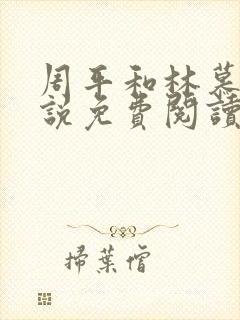 周平和林慕
說免費閱讀
掃葉僧